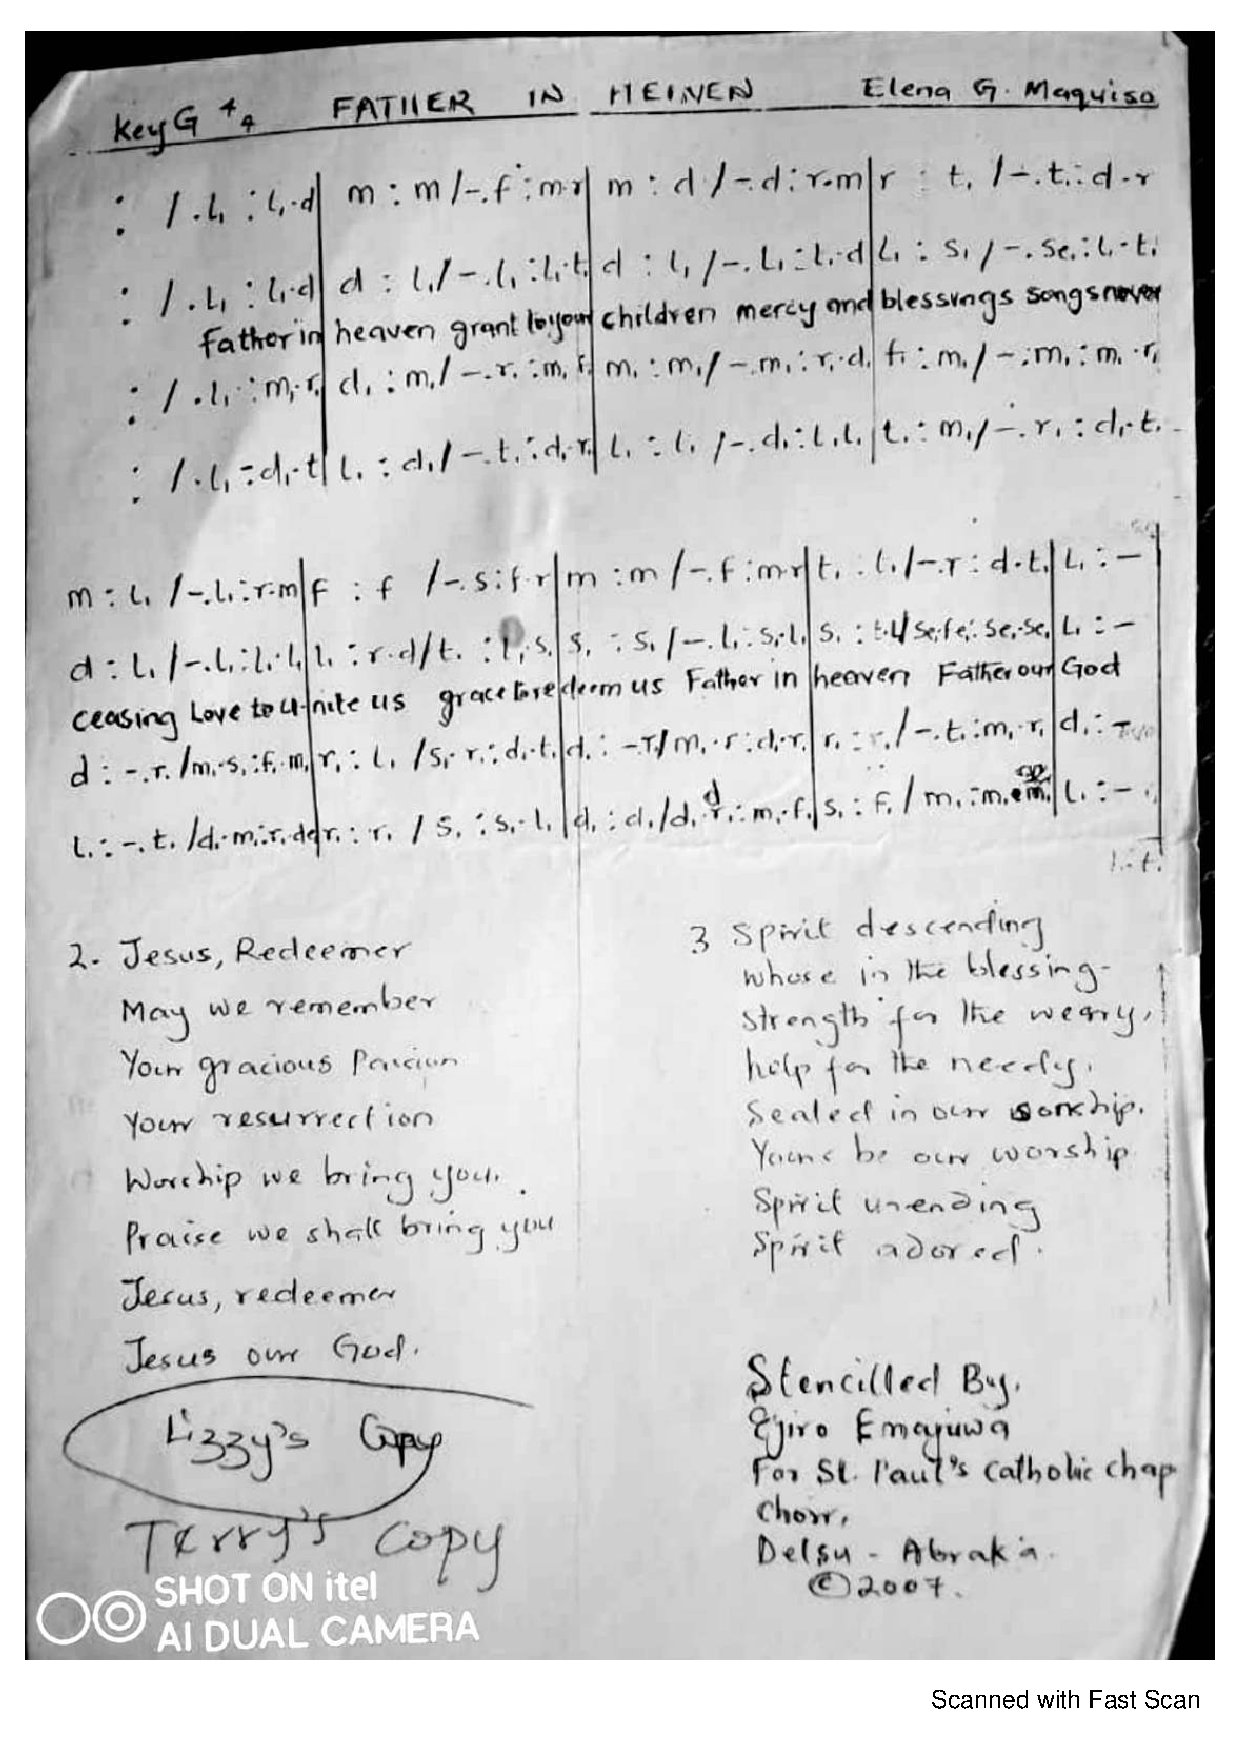 Key G 4/4 FATHER IN HEAVEN Elena G. Maquiso
: / . l, : l,.d | m : m / -. f : m.r | m : d / -. d : r.m | r : t, / -. t, : d.r
: / . l, : l,.d | d : l, / -. l, : l,.t, | d : l, / -. l, : l,.d | l, : s, / -. se, : l,.t,
Father in heaven grant to your children mercy and blessings songs never
: / . l, : m,.r, | d, : m, / -. r, : m,.f, | m, : m, / -. m, : r,.d, | f, : m, / -. m, : m,.r,
: / . l, : d,.t, | l, : d, / -. t, : d,.r, | l, : l, / -. d, : l,.l, | t, : m, / -. r, : d,.t,
m : l, / -. l, : r.m | f : f / -. s : f.r | m : m / -. f : m.r | t, : l, / -. r : d.t, | l, : -
d : l, / -. l, : l,.l, | l, : r.d / t, : l,.s, | s, : s, / -. l, : s,.l, | s, : t,.l, / se,.fe, : se,.se, | l, : -
ceasing Love to u-nite us grace to redeem us Father in heaven Father our God
d : -. r, / m,.s, : f,.m, | r, : l, / s,.r, : d,.t, | d, : -. r, / m,.r : d,.r, | r, : r, / -. t, : m,.r, | d, : -
l, : -. t, / d,.m, : r,.d | r, : r, / s, : s,.l, | d, : d, / d,.r, : m,.f, | s, : f, / m, : m, m, | l, : -
l,.t,
2. Jesus, Redeemer
May we remember
Your gracious Passion
Your resurrection
Worship we bring you.
Praise we shall bring you
Jesus, redeemer
Jesus our God.
3 Spirit descending
whose in the blessing-
Strength for the weary,
help for the needy.
Sealed in our sonship.
Yours be our worship
Spirit unending
Spirit adored.
Lizzy's Copy
Terry's Copy
Stencilled By.
Ejiro Emajuwa
For St. Paul's Catholic chap
Choir,
Delsu - Abraka.
© 2007.
SHOT ON itel
AI DUAL CAMERA
Scanned with Fast Scan